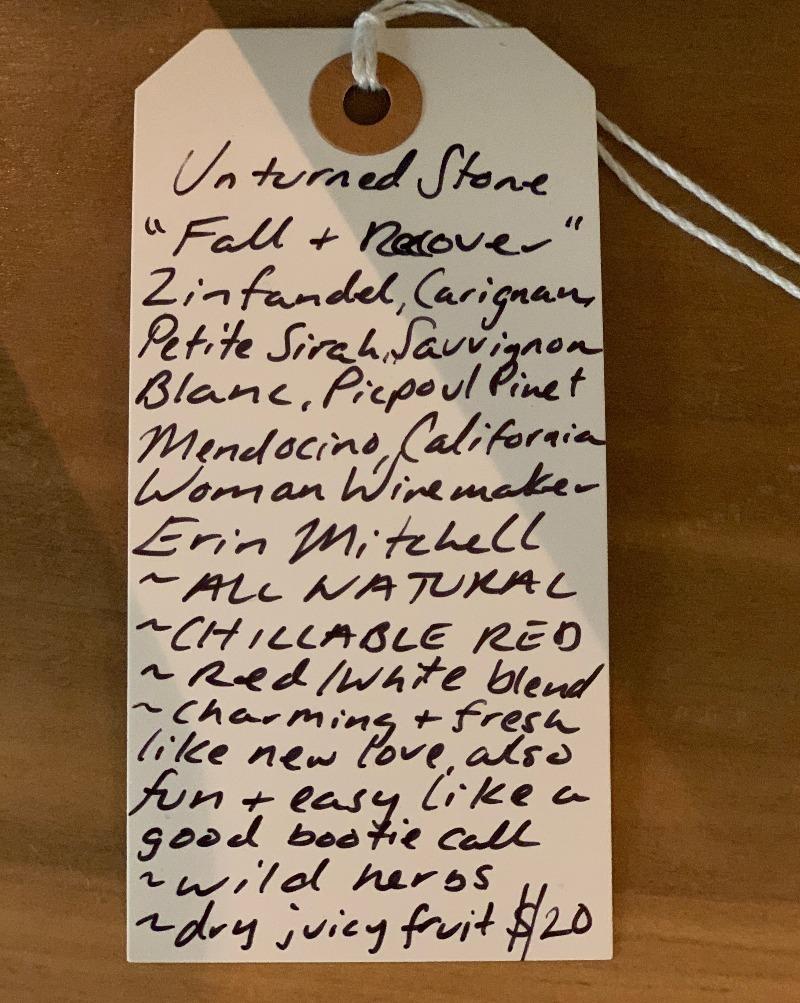 Unturned Stone
"Fall + Recover"
Zinfandel, Carignan,
Petite Sirah, Sauvignon
Blanc, Picpoul Pinet
Mendocino, California
Woman Winemaker
Erin Mitchell
~ ALL NATURAL
~CHILLABLE RED
~ Red/White blend
~charming + fresh
like new love, also
fun + easy like a
good bootie call
~wild herbs
~dry juicy fruit $20